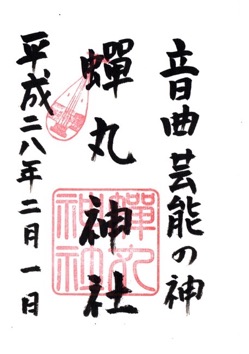 音曲芸能の神
蟬丸神社
平成二八年二月一日
蟬丸神社